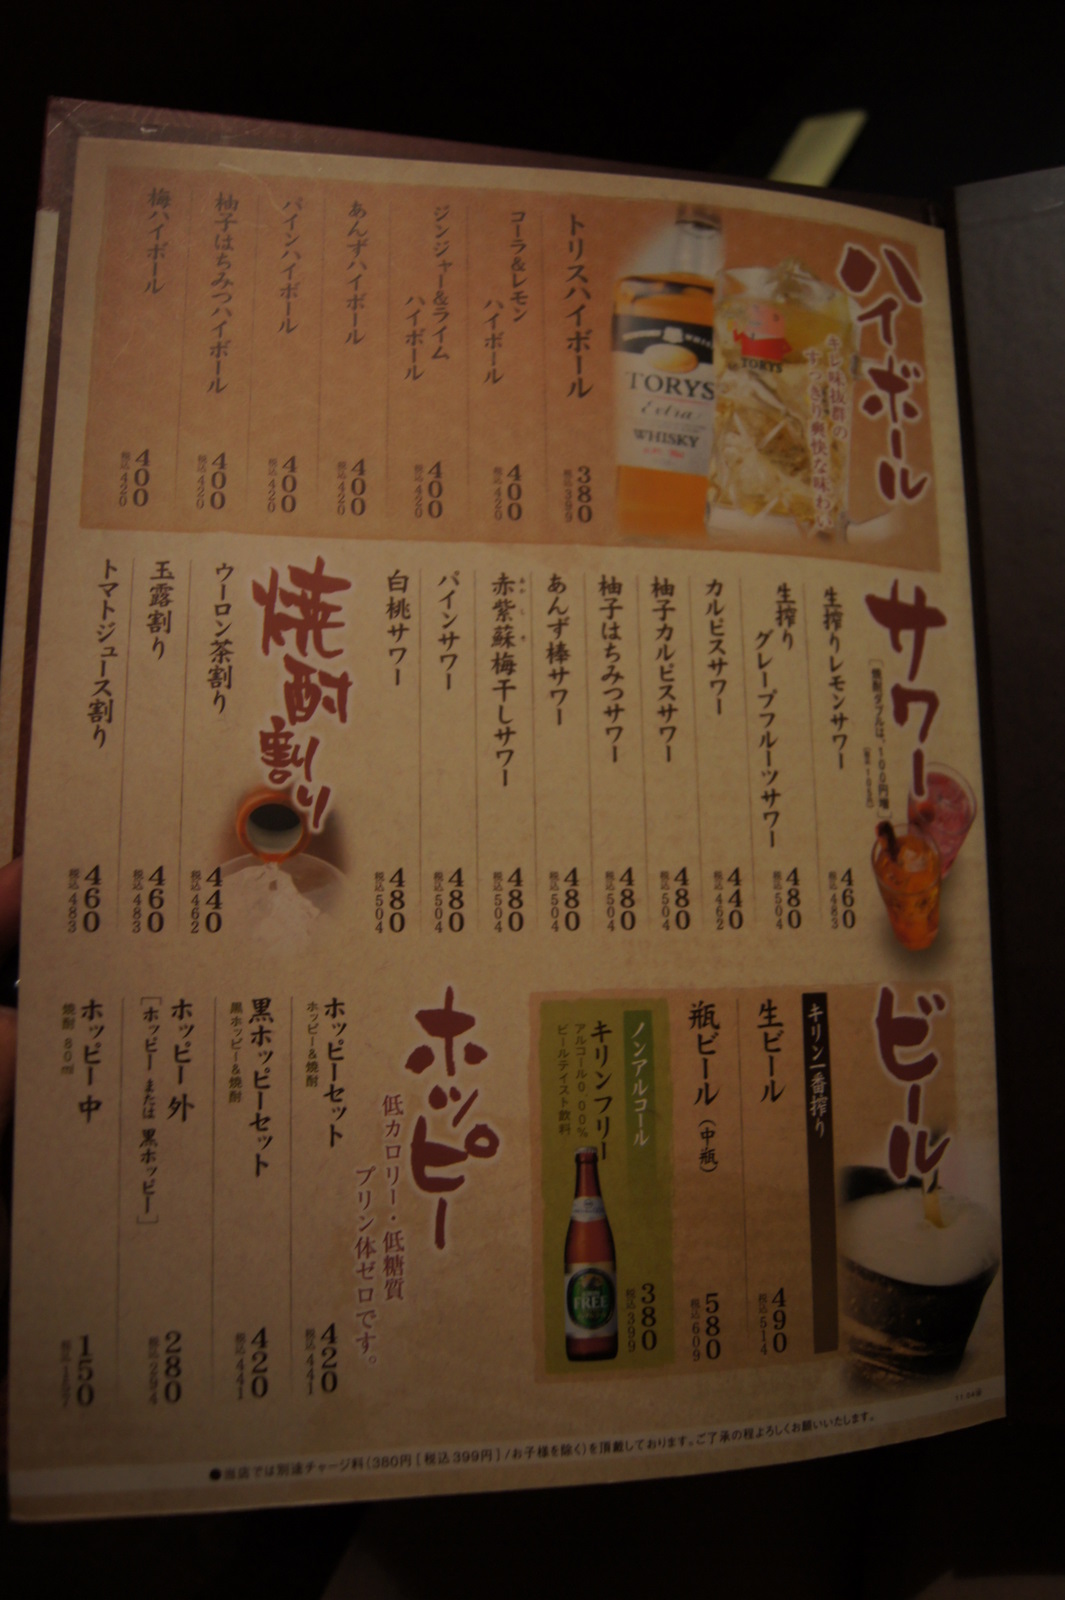 ハイボール
キレ味抜群の
すっきり爽快な味わい
TORYS
TORYS
Extra
WHISKY
トリスハイボール
380
税込399
コーラ&レモン
ハイボール
400
税込420
ジンジャー&ライム
ハイボール
400
税込420
あんずハイボール
400
税込420
パインハイボール
400
税込420
柚子はちみつハイボール
400
税込420
梅ハイボール
400
税込420
サワー
[焼酎ダブルは、100円増]
(税込105円)
生搾りレモンサワー
460
税込483
生搾り
グレープフルーツサワー
480
税込504
カルピスサワー
440
税込462
柚子カルピスサワー
480
税込504
柚子はちみつサワー
480
税込504
あんず棒サワー
480
税込504
赤紫蘇梅干しサワー
480
税込504
パインサワー
480
税込504
白桃サワー
480
税込504
焼酎割り
ウーロン茶割り
440
税込462
玉露割り
460
税込483
トマトジュース割り
460
税込483
ビール
キリン一番搾り
生ビール
490
税込514
瓶ビール(中瓶)
580
税込609
ノンアルコール
キリンフリー
アルコール0.00%
ビールテイスト飲料
FREE
380
税込399
ホッピー
低カロリー・低糖質
プリン体ゼロです。
ホッピーセット
ホッピー&焼酎
420
税込441
黒ホッピーセット
黒ホッピー&焼酎
420
税込441
ホッピー 外
[ホッピーまたは黒ホッピー]
280
税込294
ホッピー 中
焼酎 80ml
150
税込157
●当店では別途チャージ料(380円[税込399円]/お子様を除く)を頂戴しております。ご了承の程よろしくお願いいたします。